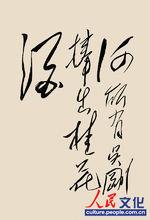 何所有吴刚
捧出桂花
酒
人民网 文化
culture.people.com.cn